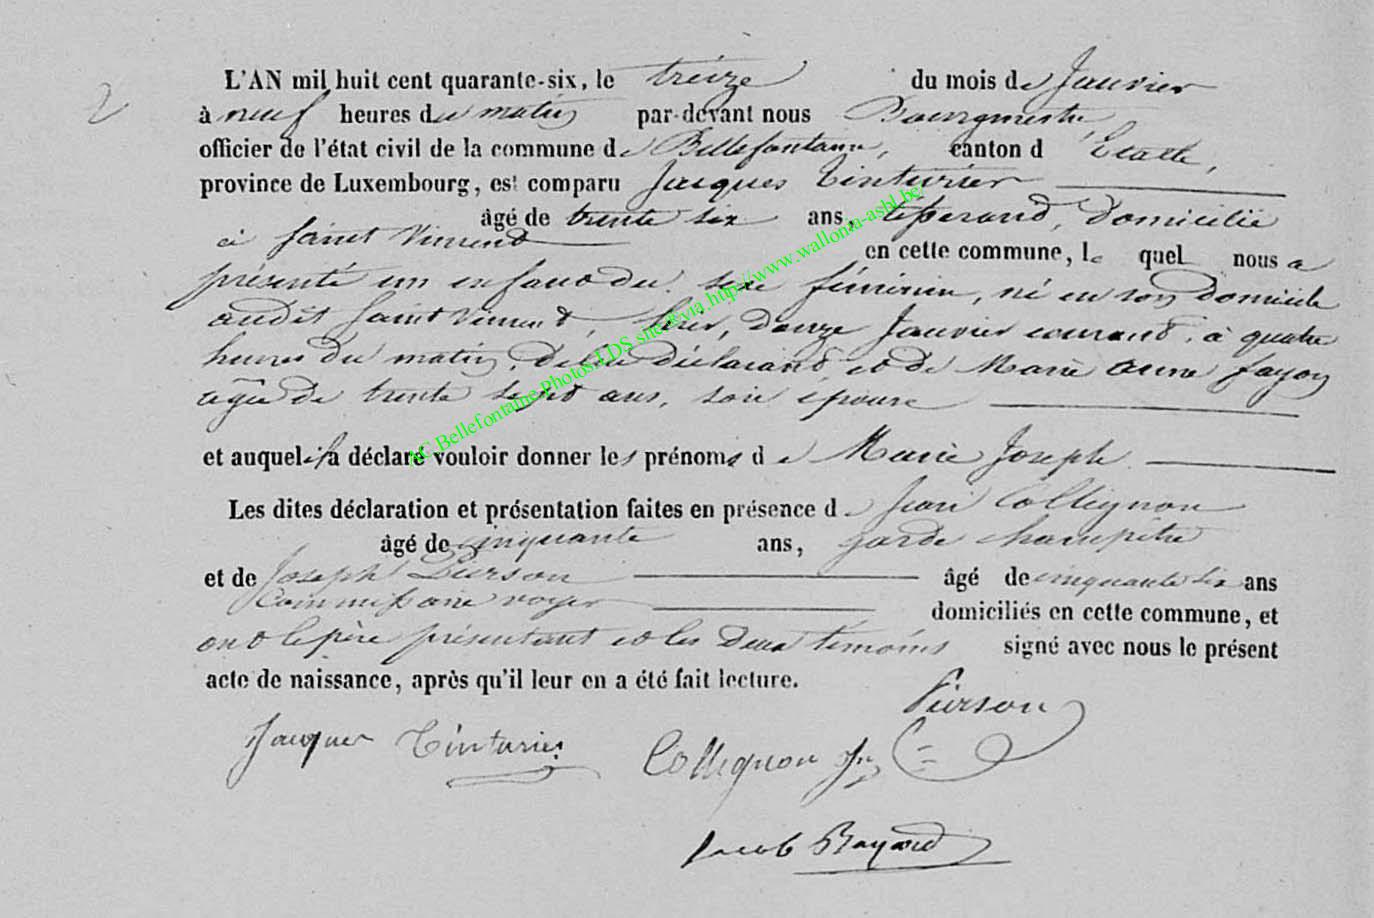 2
L'AN mil huit cent quarante-six, le treize du mois de Janvier
à neuf heures du matin par-devant nous Bourgmestre,
officier de l'état civil de la commune de Bellefontaine, canton d'Etalle,
province de Luxembourg, est comparu Jacques Tinturier
âgé de trente six ans, domicilié
à Saint Vincent en cette commune, lequel nous a
présenté un enfant du sexe féminin, né en son domicile
audit Saint Vincent, hier, douze Janvier courant, à quatre
heures du matin, de lui déclarant et de Marie Anne Fayon
âgée de trente sept ans, son épouse
et auquel il a déclaré vouloir donner les prénoms de Marie Joseph
Les dites déclaration et présentation faites en présence de Jean Collignon
âgé de cinquante ans, garde champêtre
et de Joseph Pierson âgé de cinquante six ans
Commissaire voyer domiciliés en cette commune, et
ont le père présentant et les deux témoins signé avec nous le présent
acte de naissance, après qu'il leur en a été fait lecture.
Pierson
Jacques Tinturier Collignon
Jacob
AC Bellefontaine Photos LDS site via http://www.wallonia-asbl.be/